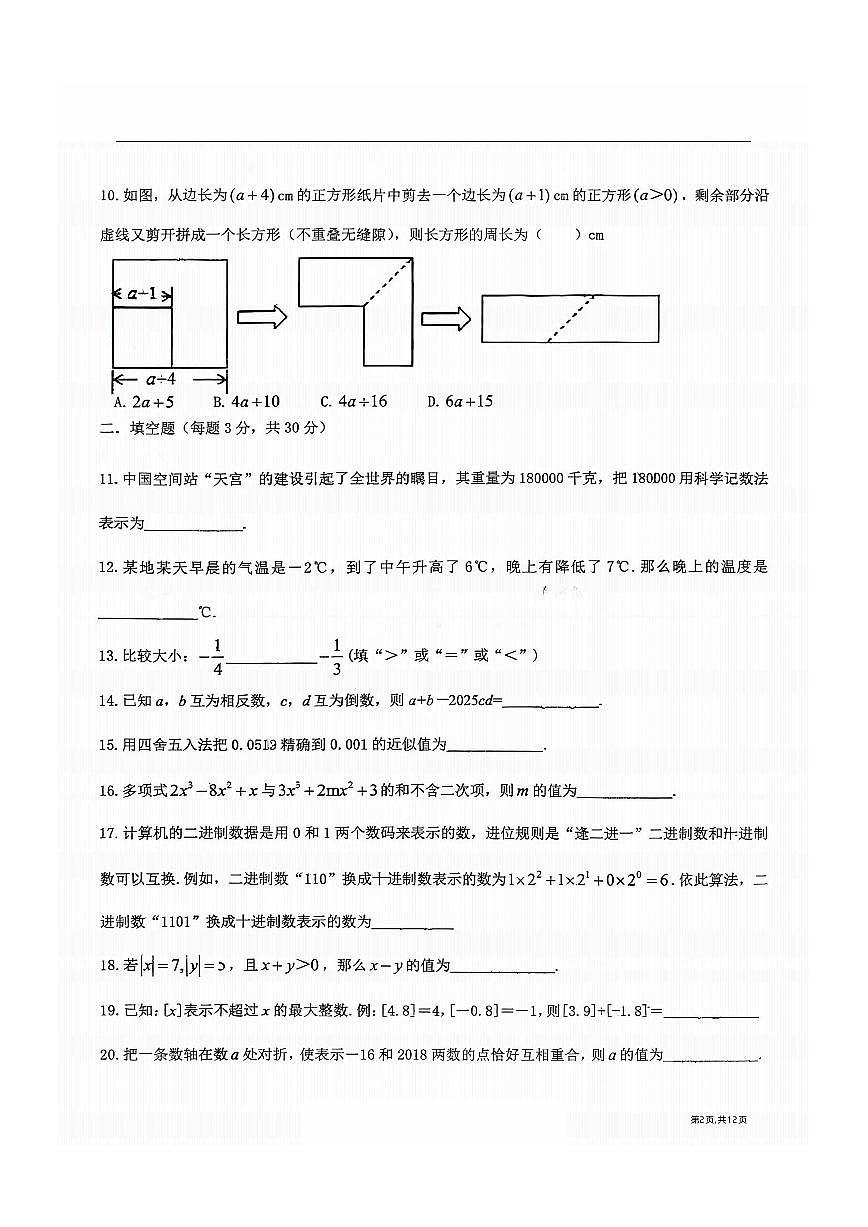 10. 如图，从边长为(a+4)cm的正方形纸片中剪去一个边长为(a+1)cm的正方形(a>0)．剩余部分沿
虚线又剪开拼成一个长方形（不重叠无缝隙），则长方形的周长为（　　）cm
a+1
a+4
A. 2a+5　　B. 4a+10　　C. 4a+16　　D. 6a+15
二．填空题（每题3分，共30分）
11. 中国空间站“天宫”的建设引起了全世界的瞩目，其重量为180000千克，把180000用科学记数法
表示为__________.
12. 某地某天早晨的气温是－2℃，到了中午升高了6℃，晚上有降低了7℃. 那么晚上的温度是
__________℃.
13. 比较大小：-1/4__________-1/3(填“>”或“=”或“<”)
14. 已知a，b互为相反数，c，d互为倒数，则a+b－2025cd=__________.
15. 用四舍五入法把0.0513精确到0.001的近似值为__________.
16. 多项式2x³－8x²+x与3x³+2mx²+3的和不含二次项，则m的值为__________.
17. 计算机的二进制数据是用0和1两个数码来表示的数，进位规则是“逢二进一”二进制数和十进制
数可以互换. 例如，二进制数“110”换成十进制数表示的数为1×2²+1×2¹+0×2⁰=6. 依此算法，二
进制数“1101”换成十进制数表示的数为__________
18. 若|x|=7,|y|=5，且x+y>0，那么x－y的值为__________.
19. 已知：[x]表示不超过x的最大整数. 例：[4.8]=4，[－0.8]=－1，则[3.9]+[-1.8]=__________
20. 把一条数轴在数a处对折，使表示－16和2018两数的点恰好互相重合，则a的值为__________.
第2页,共12页